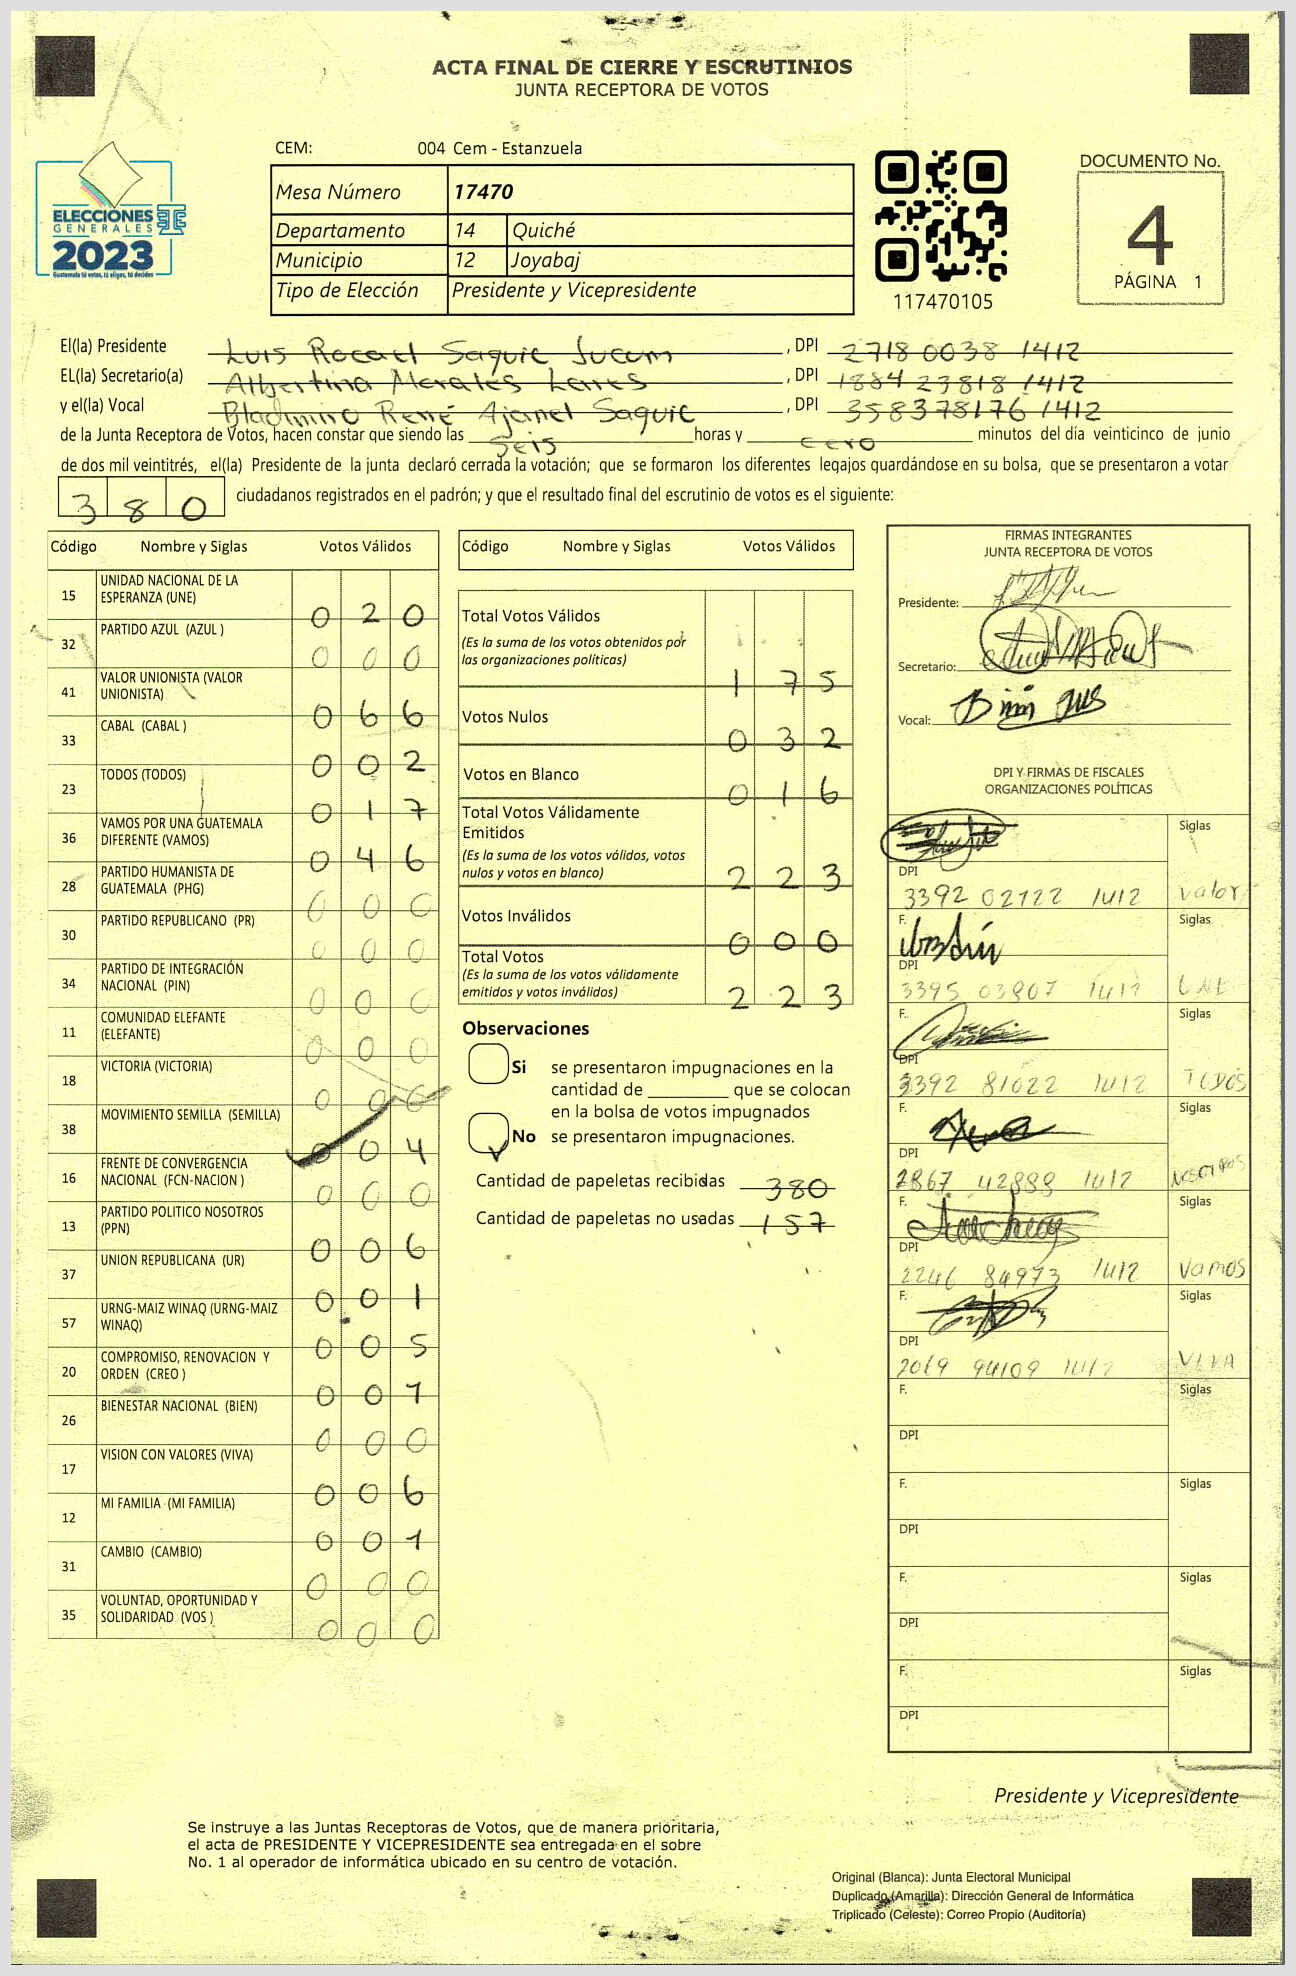 ACTA FINAL DE CIERRE Y ESCRUTINIOS
JUNTA RECEPTORA DE VOTOS
CEM: 004 Cem - Estanzuela
Mesa Número 17470
Departamento 14 Quiché
Municipio 12 Joyabaj
Tipo de Elección Presidente y Vicepresidente
ELECCIONES
GENERALES
2023
Guatemala tú votas, tú eliges, tú decides
117470105
DOCUMENTO No.
4
PÁGINA 1
El(la) Presidente Luis Rocael Saquic Jucum, DPI 2718 0038 1412
EL(la) Secretario(a) Albertina Morales Lares, DPI 1884 23818 1412
y el(la) Vocal Bladimiro René Ajanel Saquic, DPI 358378176 1412
de la Junta Receptora de Votos, hacen constar que siendo las seis horas y cero minutos del día veinticinco de junio
de dos mil veintitrés, el(la) Presidente de la junta declaró cerrada la votación; que se formaron los diferentes legajos guardándose en su bolsa, que se presentaron a votar
380 ciudadanos registrados en el padrón; y que el resultado final del escrutinio de votos es el siguiente:
Código Nombre y Siglas Votos Válidos
15 UNIDAD NACIONAL DE LA ESPERANZA (UNE) 0 2 0
32 PARTIDO AZUL (AZUL ) 0 0 0
41 VALOR UNIONISTA (VALOR UNIONISTA) 0 6 6
33 CABAL (CABAL ) 0 0 2
23 TODOS (TODOS) 0 1 7
36 VAMOS POR UNA GUATEMALA DIFERENTE (VAMOS) 0 4 6
28 PARTIDO HUMANISTA DE GUATEMALA (PHG) 0 0 0
30 PARTIDO REPUBLICANO (PR) 0 0 0
34 PARTIDO DE INTEGRACIÓN NACIONAL (PIN) 0 0 0
11 COMUNIDAD ELEFANTE (ELEFANTE) 0 0 0
18 VICTORIA (VICTORIA) 0 0 0
38 MOVIMIENTO SEMILLA (SEMILLA) 0 0 4
16 FRENTE DE CONVERGENCIA NACIONAL (FCN-NACION ) 0 0 0
13 PARTIDO POLITICO NOSOTROS (PPN) 0 0 6
37 UNION REPUBLICANA (UR) 0 0 1
57 URNG-MAIZ WINAQ (URNG-MAIZ WINAQ) 0 0 5
20 COMPROMISO, RENOVACION Y ORDEN (CREO ) 0 0 1
26 BIENESTAR NACIONAL (BIEN) 0 0 0
17 VISION CON VALORES (VIVA) 0 0 6
12 MI FAMILIA (MI FAMILIA) 0 0 1
31 CAMBIO (CAMBIO) 0 0 0
35 VOLUNTAD, OPORTUNIDAD Y SOLIDARIDAD (VOS ) 0 0 0
Código Nombre y Siglas Votos Válidos
Total Votos Válidos
(Es la suma de los votos obtenidos por
las organizaciones políticas) 1 7 5
Votos Nulos 0 3 2
Votos en Blanco 0 1 6
Total Votos Válidamente
Emitidos
(Es la suma de los votos válidos, votos
nulos y votos en blanco) 2 2 3
Votos Inválidos 0 0 0
Total Votos
(Es la suma de los votos válidamente
emitidos y votos inválidos) 2 2 3
Observaciones
Si se presentaron impugnaciones en la
cantidad de ________ que se colocan
en la bolsa de votos impugnados
No se presentaron impugnaciones.
Cantidad de papeletas recibidas 380
Cantidad de papeletas no usadas 157
FIRMAS INTEGRANTES
JUNTA RECEPTORA DE VOTOS
Presidente:
Secretario:
Vocal:
DPI Y FIRMAS DE FISCALES
ORGANIZACIONES POLÍTICAS
Siglas
DPI
3392 02722 1412 Valor
F. Siglas
DPI
3395 03807 1412 UNE
F. Siglas
DPI
3392 81022 1412 TODOS
F. Siglas
DPI
2867 42888 1412 NOSOTROS
F. Siglas
DPI
2246 84973 1412 Vamos
F. Siglas
DPI
2069 94109 1412 VIVA
F. Siglas
DPI
F. Siglas
DPI
F. Siglas
DPI
F. Siglas
DPI
Presidente y Vicepresidente
Se instruye a las Juntas Receptoras de Votos, que de manera prioritaria,
el acta de PRESIDENTE Y VICEPRESIDENTE sea entregada en el sobre
No. 1 al operador de informática ubicado en su centro de votación.
Original (Blanca): Junta Electoral Municipal
Duplicado (Amarilla): Dirección General de Informática
Triplicado (Celeste): Correo Propio (Auditoría)